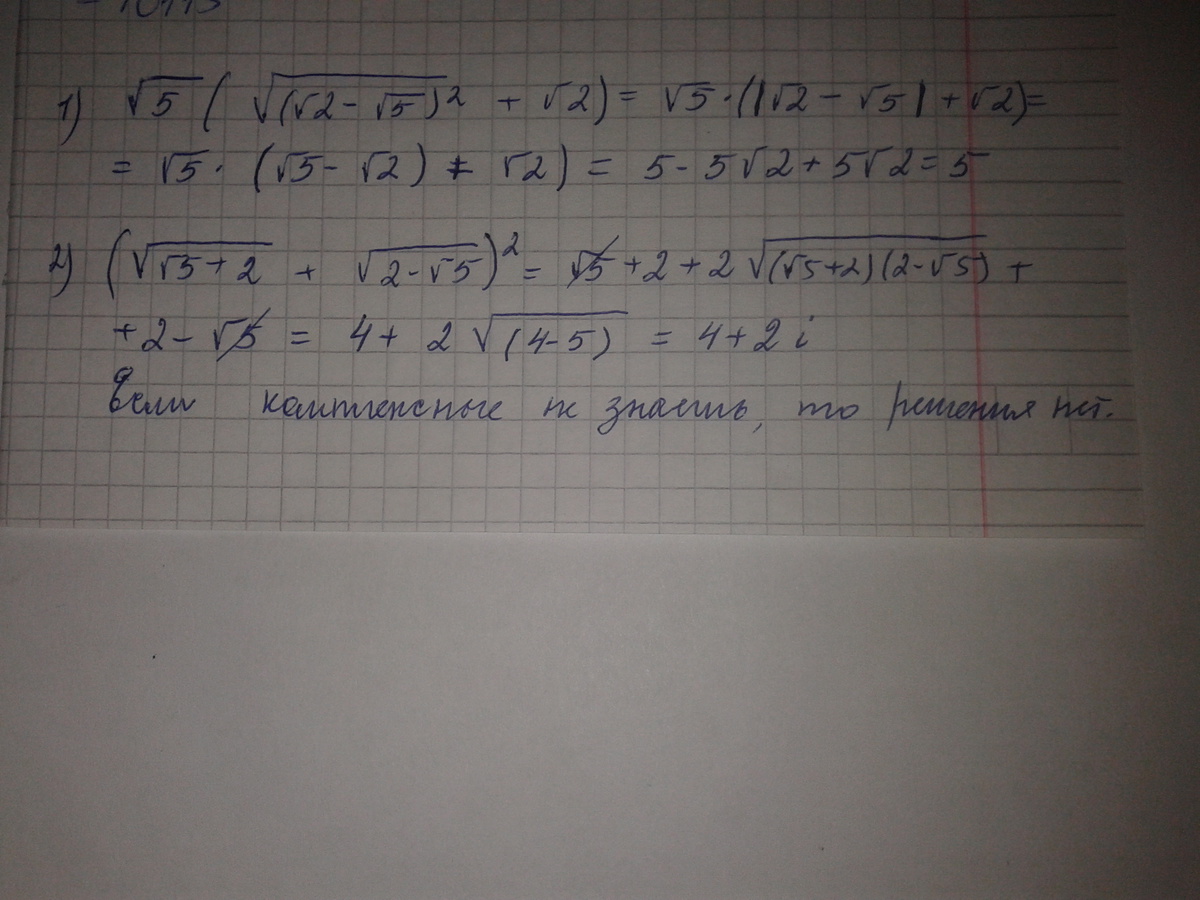 1) √5 ( √(√2 - √5)² + √2) = √5 · (|√2 - √5| + √2) =
= √5 · (√5 - √2) + √2) = 5 - 5√2 + 5√2 = 5
2) (√(√5 + 2) + √(2 - √5))² = √5 + 2 + 2√((√5+2)(2-√5)) +
+ 2 - √5 = 4 + 2√(4-5) = 4 + 2i
Если комплексные не знаешь, то решения нет.